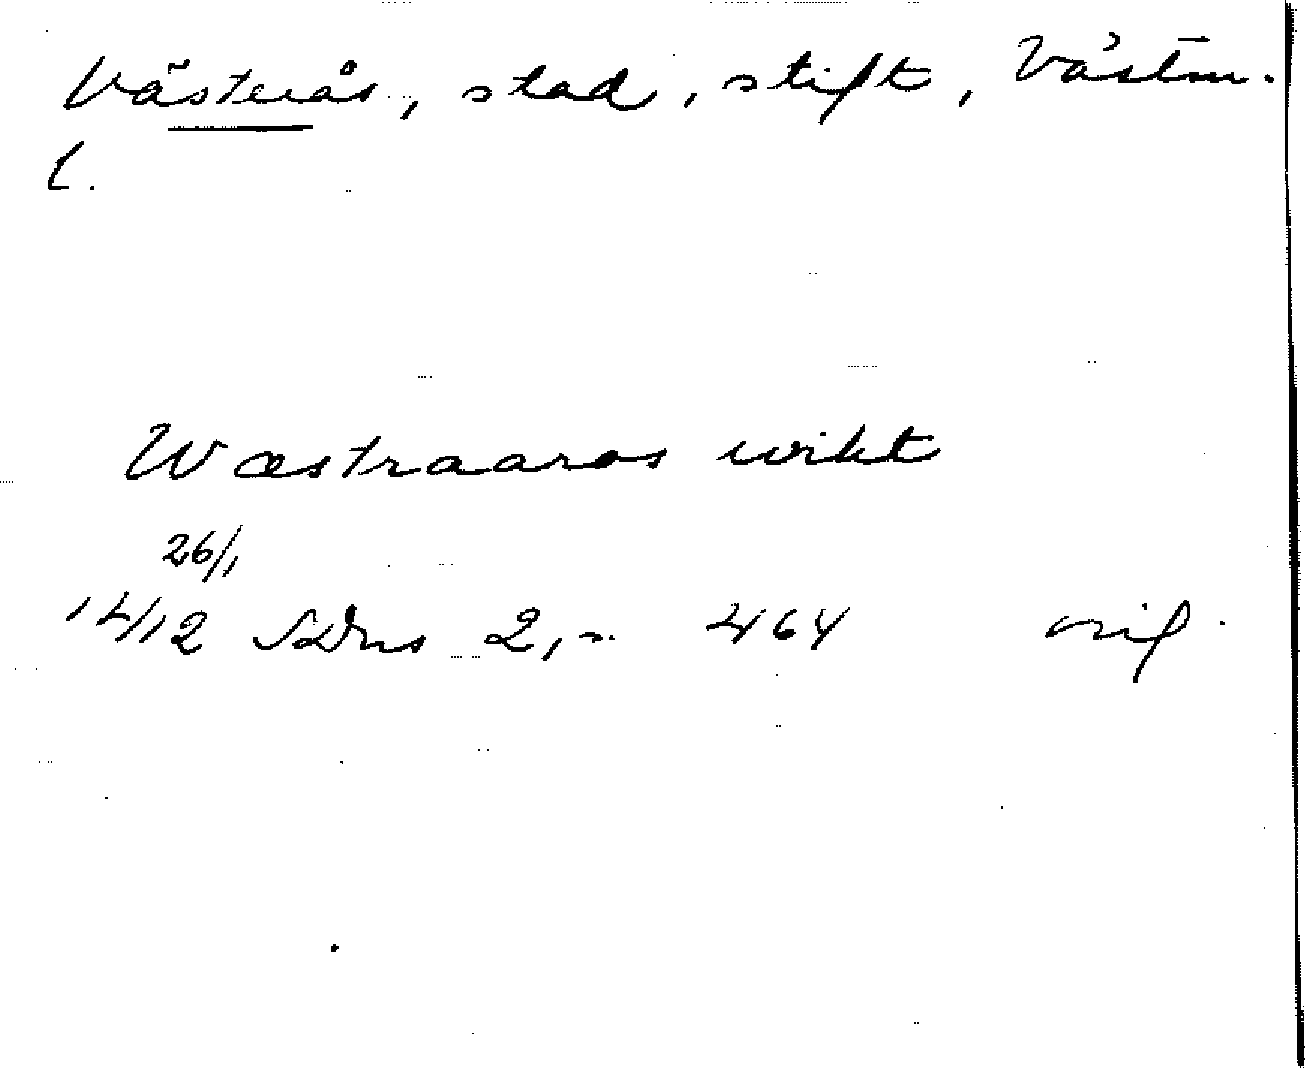 Västerås, stad, stift, Västm.
l.
Wæstraaros wikt
26/1
1412 SDns 2, s. 464 orig.